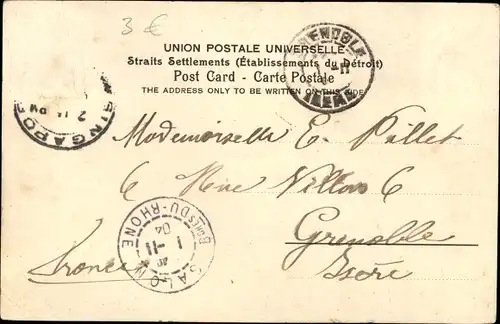 3 €
UNION POSTALE UNIVERSELLE
Straits Settlements (Établissements du Détroit)
Post Card - Carte Postale
THE ADDRESS ONLY TO BE WRITTEN ON THIS SIDE
GRENOBLE
11
ISERE
SINGAPORE
2
PM
Mademoiselle E. Pallet
6 Rue Villars 6
Grenoble
Isère
France
SALON
BCHES DU-RHONE
1 -11
04